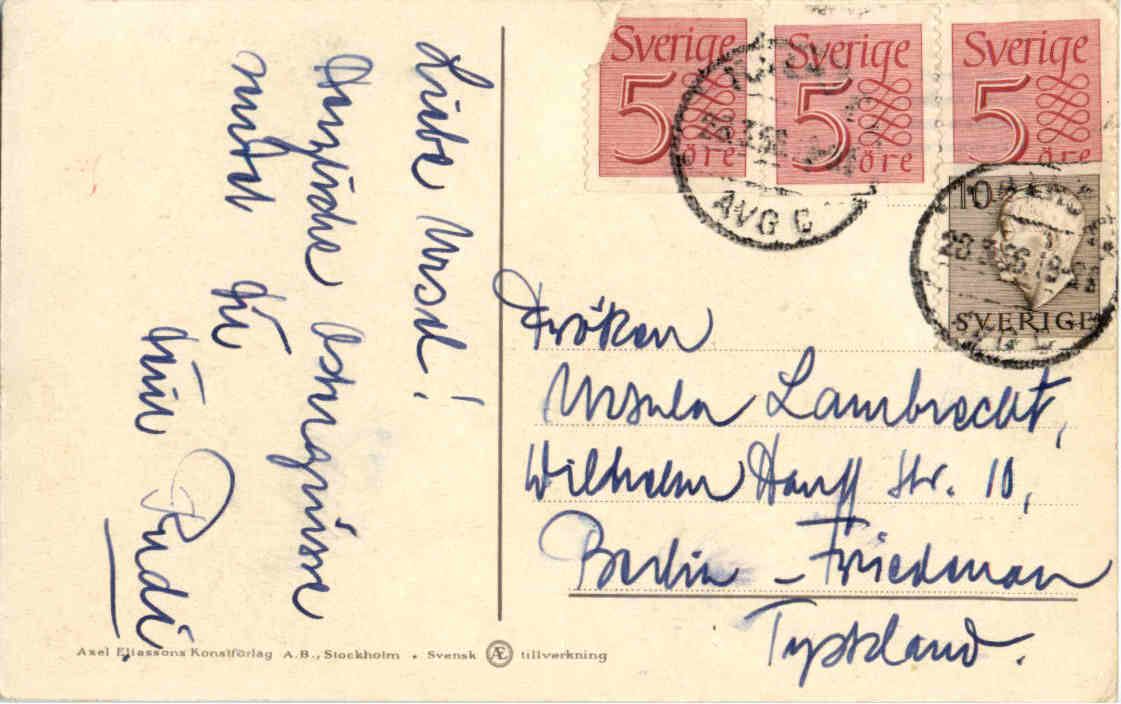 Liebe Ursel!
Herzliche Ostergrüsse
sendet Dir
Dein Rudi
Sverige
5
öre
Sverige
5
öre
Sverige
5
öre
10
SVERIGE
AVG
Fröken
Ursula Lambrecht,
Wilhelm Hauff Str. 10,
Berlin – Friedenau
Tyskland.
Axel Eliassons Konstförlag A.B., Stockholm • Svensk Æ tillverkning